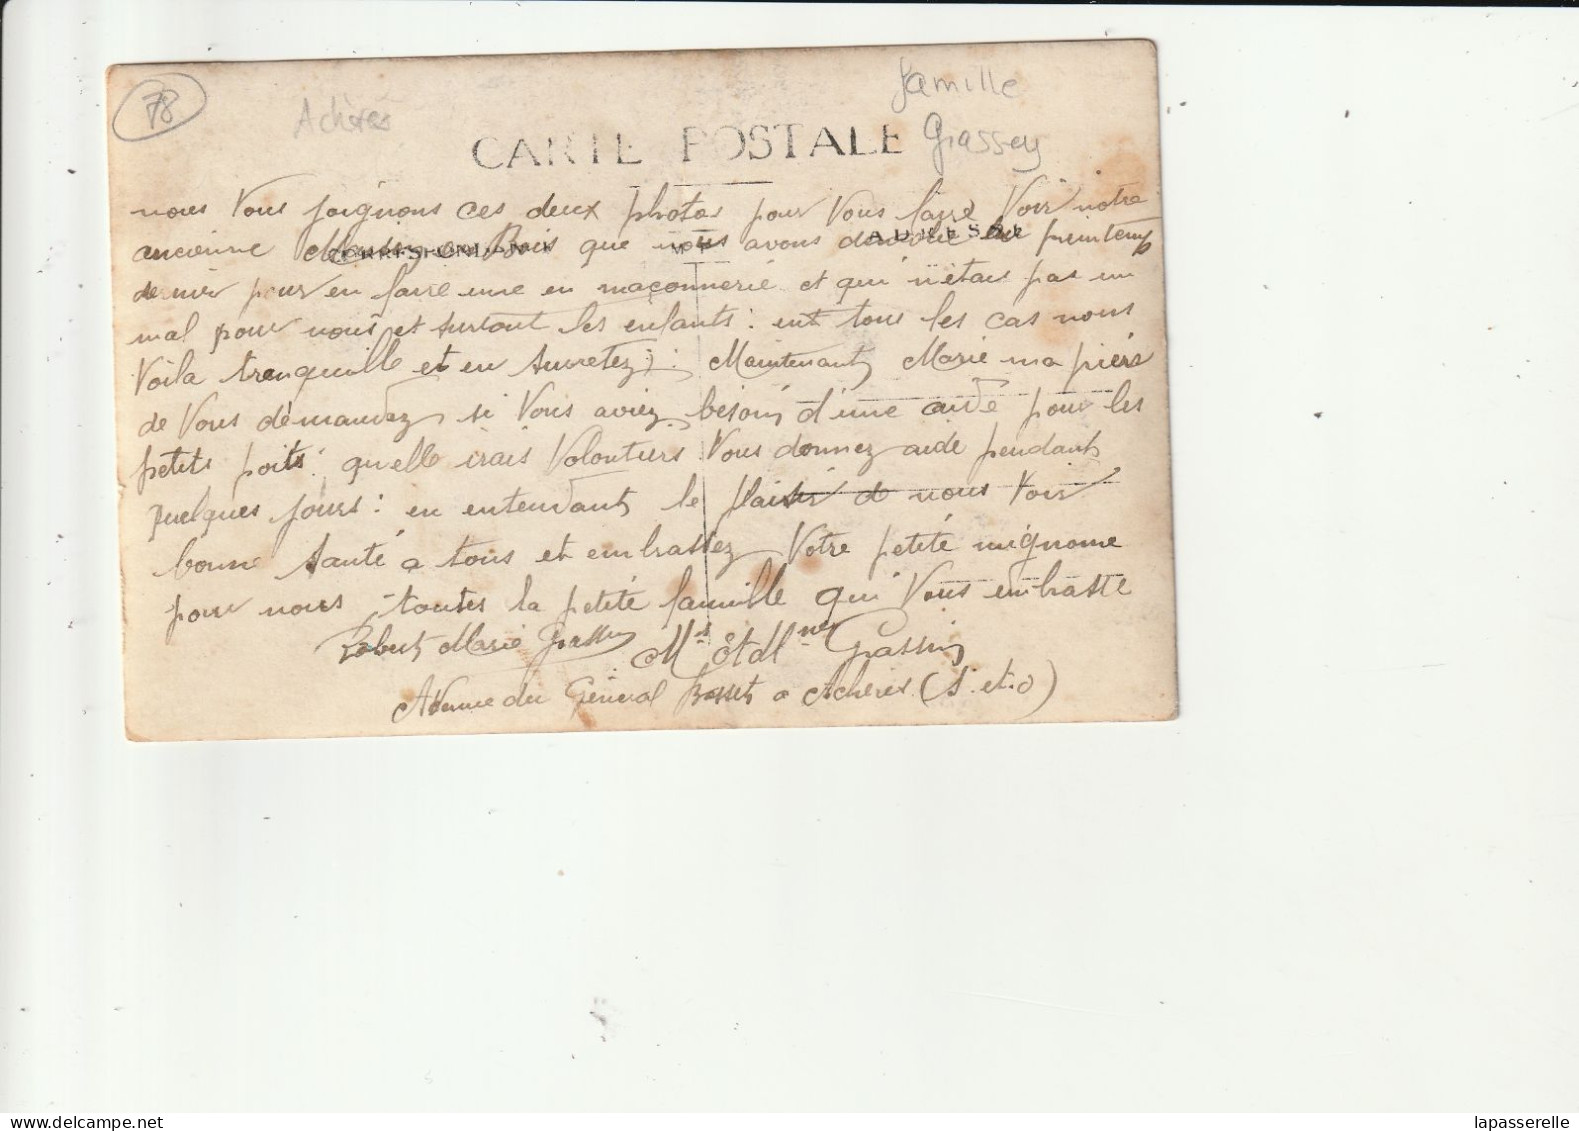 78
Achères
famille
Grassey
CARTE POSTALE
nous Vous joignons ces deux photos pour Vous faire Voir notre
ancienne Maison en Bois que nous avons démolie au printemps
CORRESPONDANCE
ADRESSE
dernier pour en faire une en maçonnerie et qui n'étais pas un
mal pour nous et surtout les enfants : ent tous les cas nous
Voila tranquille et en suretez : Maintenant Marie ma pières
de Vous demandez si Vous aviez besoin d'une aide pour les
petits poits : quelle irais Volontiers Vous donnez aide pendant
quelques jours : en entendant le plaisir de nous Voir
bonne santé a tous et embrassez Votre petite mignonne
pour nous toutes la petite famille qui Vous embrasse
Robert Marie Grassin Mr et Mme Grassin
Avenue du Général Bosset a Achères (S. et. O)
lapasserelle